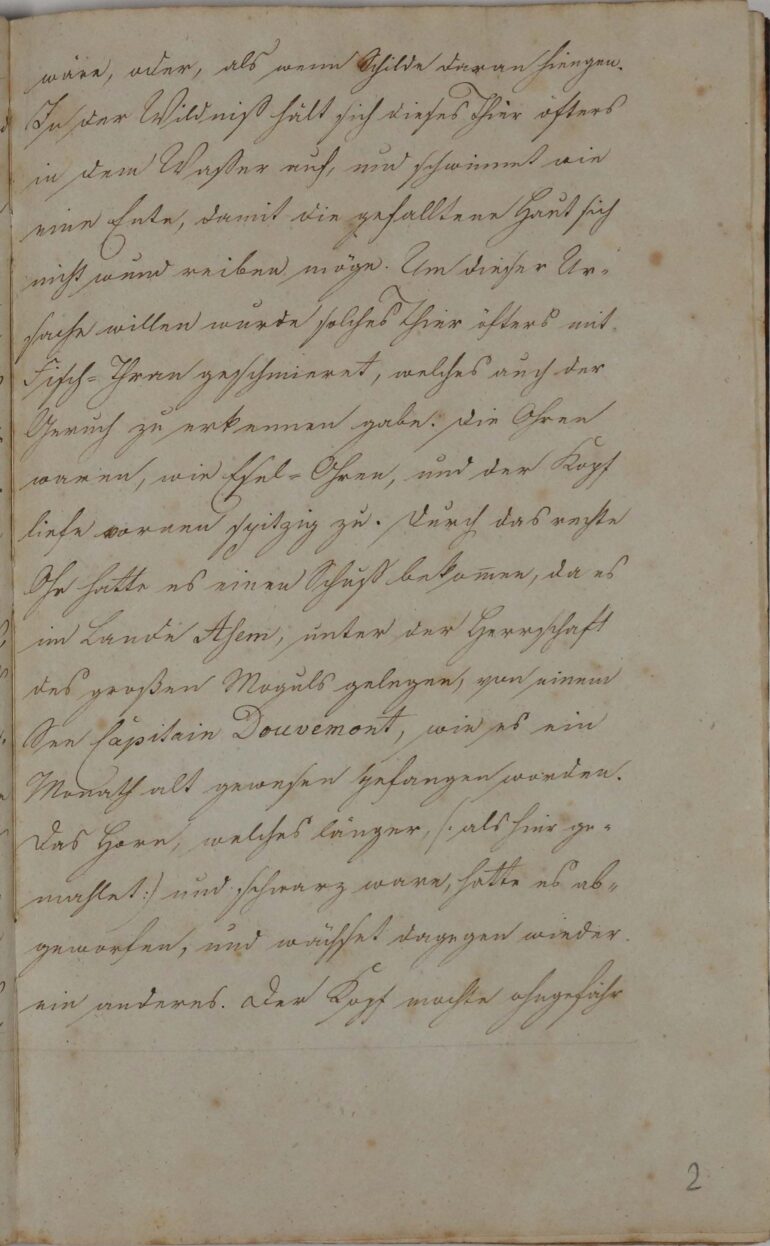 wäre, oder, als wenn Schilde daran hiengen.
In der Wildniß hält sich dieses Thier öfters
in dem Waßer auf, und schwimmt wie
eine Ente, damit die gefalltene Haut sich
nicht wund reiben möge. Um dieser Ur=
sache willen wurde solches Thier öfters mit
Fisch=Thran geschmieret, welches auch der
Geruch zu erkennen gabe. Die Ohren
waren, wie Esel=Ohren, und der Kopf
liefe vornen spitzig zu. Durch das rechte
Ohr hatte es einen Schuß bekom̅en, da es
im Lande Asem, unter der Herrschaft
des großen Moguls gelegen, von einem
See Capitain Douvemont, wie es ein
Monath alt gewesen gefangen worden.
Das Horn, welches länger, (: als hier ge=
mahlet:) und schwarz ware, hatte es ab=
geworfen, und wächset dagegen wieder
ein anderes. Der Kopf mochte ohngefähr
2